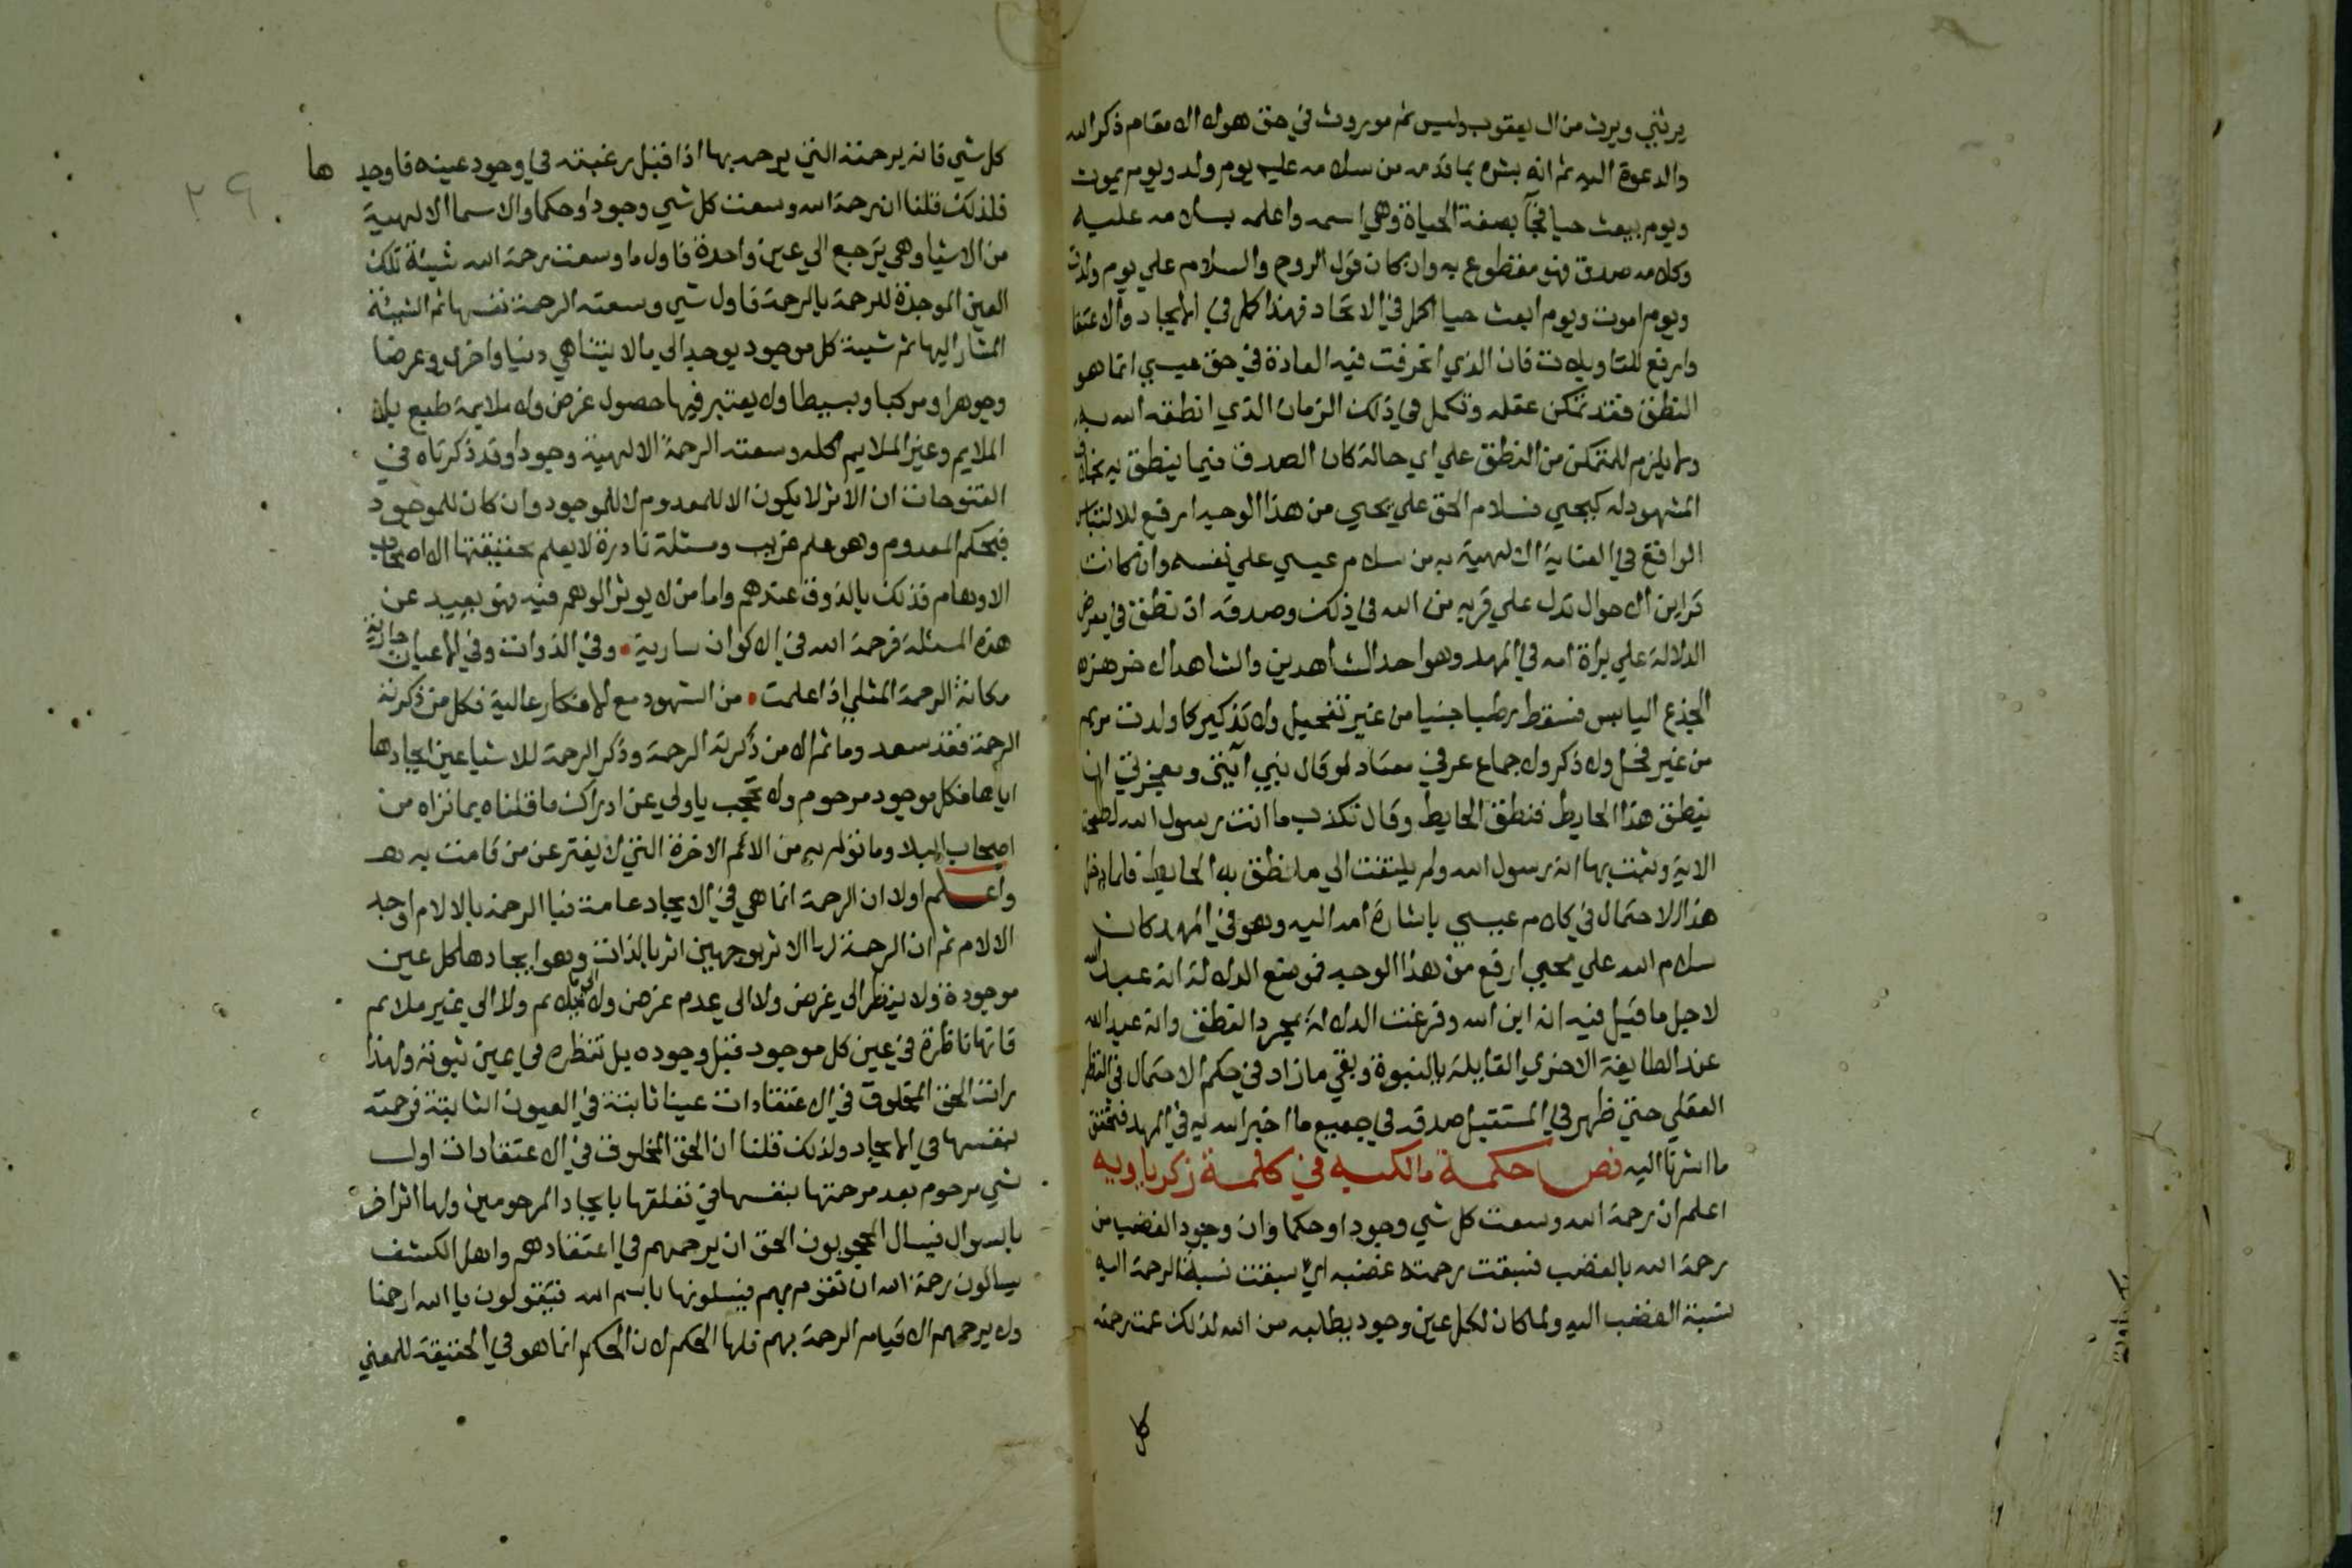 يرثني ويرث من ال يعقوب وليس ثم موروث في حق هولا الا مقام ذكر الله
والدعوة اليه ثم انه بشره بما قدمه من سلامه عليه يوم ولد ويوم يموت
ويوم يبعث حيا فجآ بصفة الحياة وهي اسمه واعلمه بسلامه عليه
وكلامه صدق فهو مقطوع به وان كان قول الروح والسلام علي يوم ولدت
ويوم اموت ويوم ابعث حيا اكمل في الاتحاد فهذا اكمل في الايجاد والاعتقا
وارفع للتاويلات فان الذي انخرقت فيه العادة في حق عيسي انما هو
النطق فقد تمكن عقله وتكمل في ذلك الزمان الذي انطقه الله به
ولا يلزم للمتمكن من النطق علي اي حالة كان الصدق فيما ينطق به بخلاف
المشهود له كيحيي فسلام الحق علي يحيي من هذا الوجه ارفع للالتباس
الواقع في العناية الالهية به من سلام عيسي علي نفسه وان كانت
قراين الاحوال تدل علي قربه من الله في ذلك وصدقه اذ نطق في معرض
الدلالة علي براة امه في المهد وهو احد الشاهدين والشاهد الاخر هزه
الجذع اليابس فسقط رطبا جنيا من غير تفحيل ولا تذكير كما ولدت مريم
من غير فحل ولا ذكر ولا جماع عرفي معتاد لو قال نبي آيتي ومعجزتي ان
ينطق هذا الحايط فنطق الحايط وقال تكذب ما انت رسول الله لصحت
الاية وثبت بها انه رسول الله ولم يلتفت الي ما نطق به الحايط فلما دخل
هذا الاحتمال في كلام عيسي باشارة امه اليه وهو في المهد كان
سلام الله علي يحيي ارفع من هذا الوجه فموضع الدلالة انه عبد الله
لاجل ما قيل فيه انه ابن الله وفرغت الدلالة بمجرد النطق وانه عبد الله
عند الطايفة الاخري القايلة بالنبوة وبقي ما زاد في حكم الاحتمال في النظر
العقلي حتي ظهر في المستقبل صدقه في جميع ما اخبر الله به في المهد فتحقق
ما اشرنا اليه فص حكمة مالكيه في كلمة زكرياويه
اعلم ان رحمة الله وسعت كل شي وجودا وحكما وان وجود الغضب من
رحمة الله بالغضب فسبقت رحمته غضبه اي سبقت نسبة الرحمة اليه
نسبة الغضب اليه ولما كان لكل عين وجود يطلبه من الله لذلك عمت رحمته
كل
كل شي فانه برحمته التي يرحمه بها اذا قبل رغبته في وجود عينه فاوجد ها
فلذلك قلنا ان رحمة الله وسعت كل شي وجودا وحكما والاسما الالهية
من الاشيا وهي يرجع الي عين واحدة فاول ما وسعت رحمة الله شيئة تلك
العين الموجدة للرحمة بالرحمة فاول شي وسعته الرحمة نفسها ثم الشيئة
المشار اليها ثم شيئة كل موجود يوجد الي ما لا يتناهي دنيا واخري وعرضا
وجوهرا ومركبا وبسيطا ولا يعتبر فيها حصول غرض ولا ملايمة طبع بل
الملايم وغير الملايم كله وسعته الرحمة الالهية وجودا وقد ذكرناه في
الفتوحات ان الاثر لا يكون الا للمعدوم لا للموجود وان كان للموجود
فبحكم المعدوم وهو علم غريب ومسئلة نادرة لا يعلم حقيقتها الا اصحاب
الاوهام فذلك بالذوق عندهم واما من لا يوثر الوهم فيه فهو بعيد عن
هذه المسئلة فرحمة الله في الاكوان سارية • وفي الذوات وفي الاعيان جارية
مكانة الرحمة المثلي اذا علمت • من الشهود مع الافكار عالية فكل من ذكرته
الرحمة فقد سعد وما ثم الا من ذكرته الرحمة وذكر الرحمة للاشيا عين ايجادها
اياها فكل موجود مرحوم ولا تحجب يا ولي عن ادراك ما قلناه بما نراه من
اصحاب البلا وما نومن به من الام الاخرة التي لا يفتر عن من قامت به
واعلم اولا ان الرحمة انما هي في الايجاد عامة فبا الرحمة بالالام اوجد
الالام ثم ان الرحمة لها الاثر بوجهين اثر بالذات وهو ايجادها كل عين
موجودة ولا ينظر الي غرض ولا الي عدم غرض ولا الي ملايم ولا الي غير ملايم
فانها ناظرة في عين كل موجود قبل وجوده بل تنظره في عين ثبوته ولهذا
رات الحق المخلوق في الاعتقادات عينا ثابتة في العيون الثابتة فرحمته
بنفسها في الايجاد ولذلك قلنا ان الحق المخلوق في الاعتقادات اول
شي مرحوم بعد رحمتها بنفسها في تعلقها بايجاد المرحومين ولها اثر اخر
بالسوال فيسال المحجوبون الحق ان يرحمهم في اعتقادهم واهل الكشف
يسالون رحمة الله ان تقوم بهم فيسلونها باسم الله فيقولون يا الله ارحمنا
ولا يرحمهم الا قيام الرحمة بهم فلها الحكم لان الحكم انما هو في الحقيقة للمعني